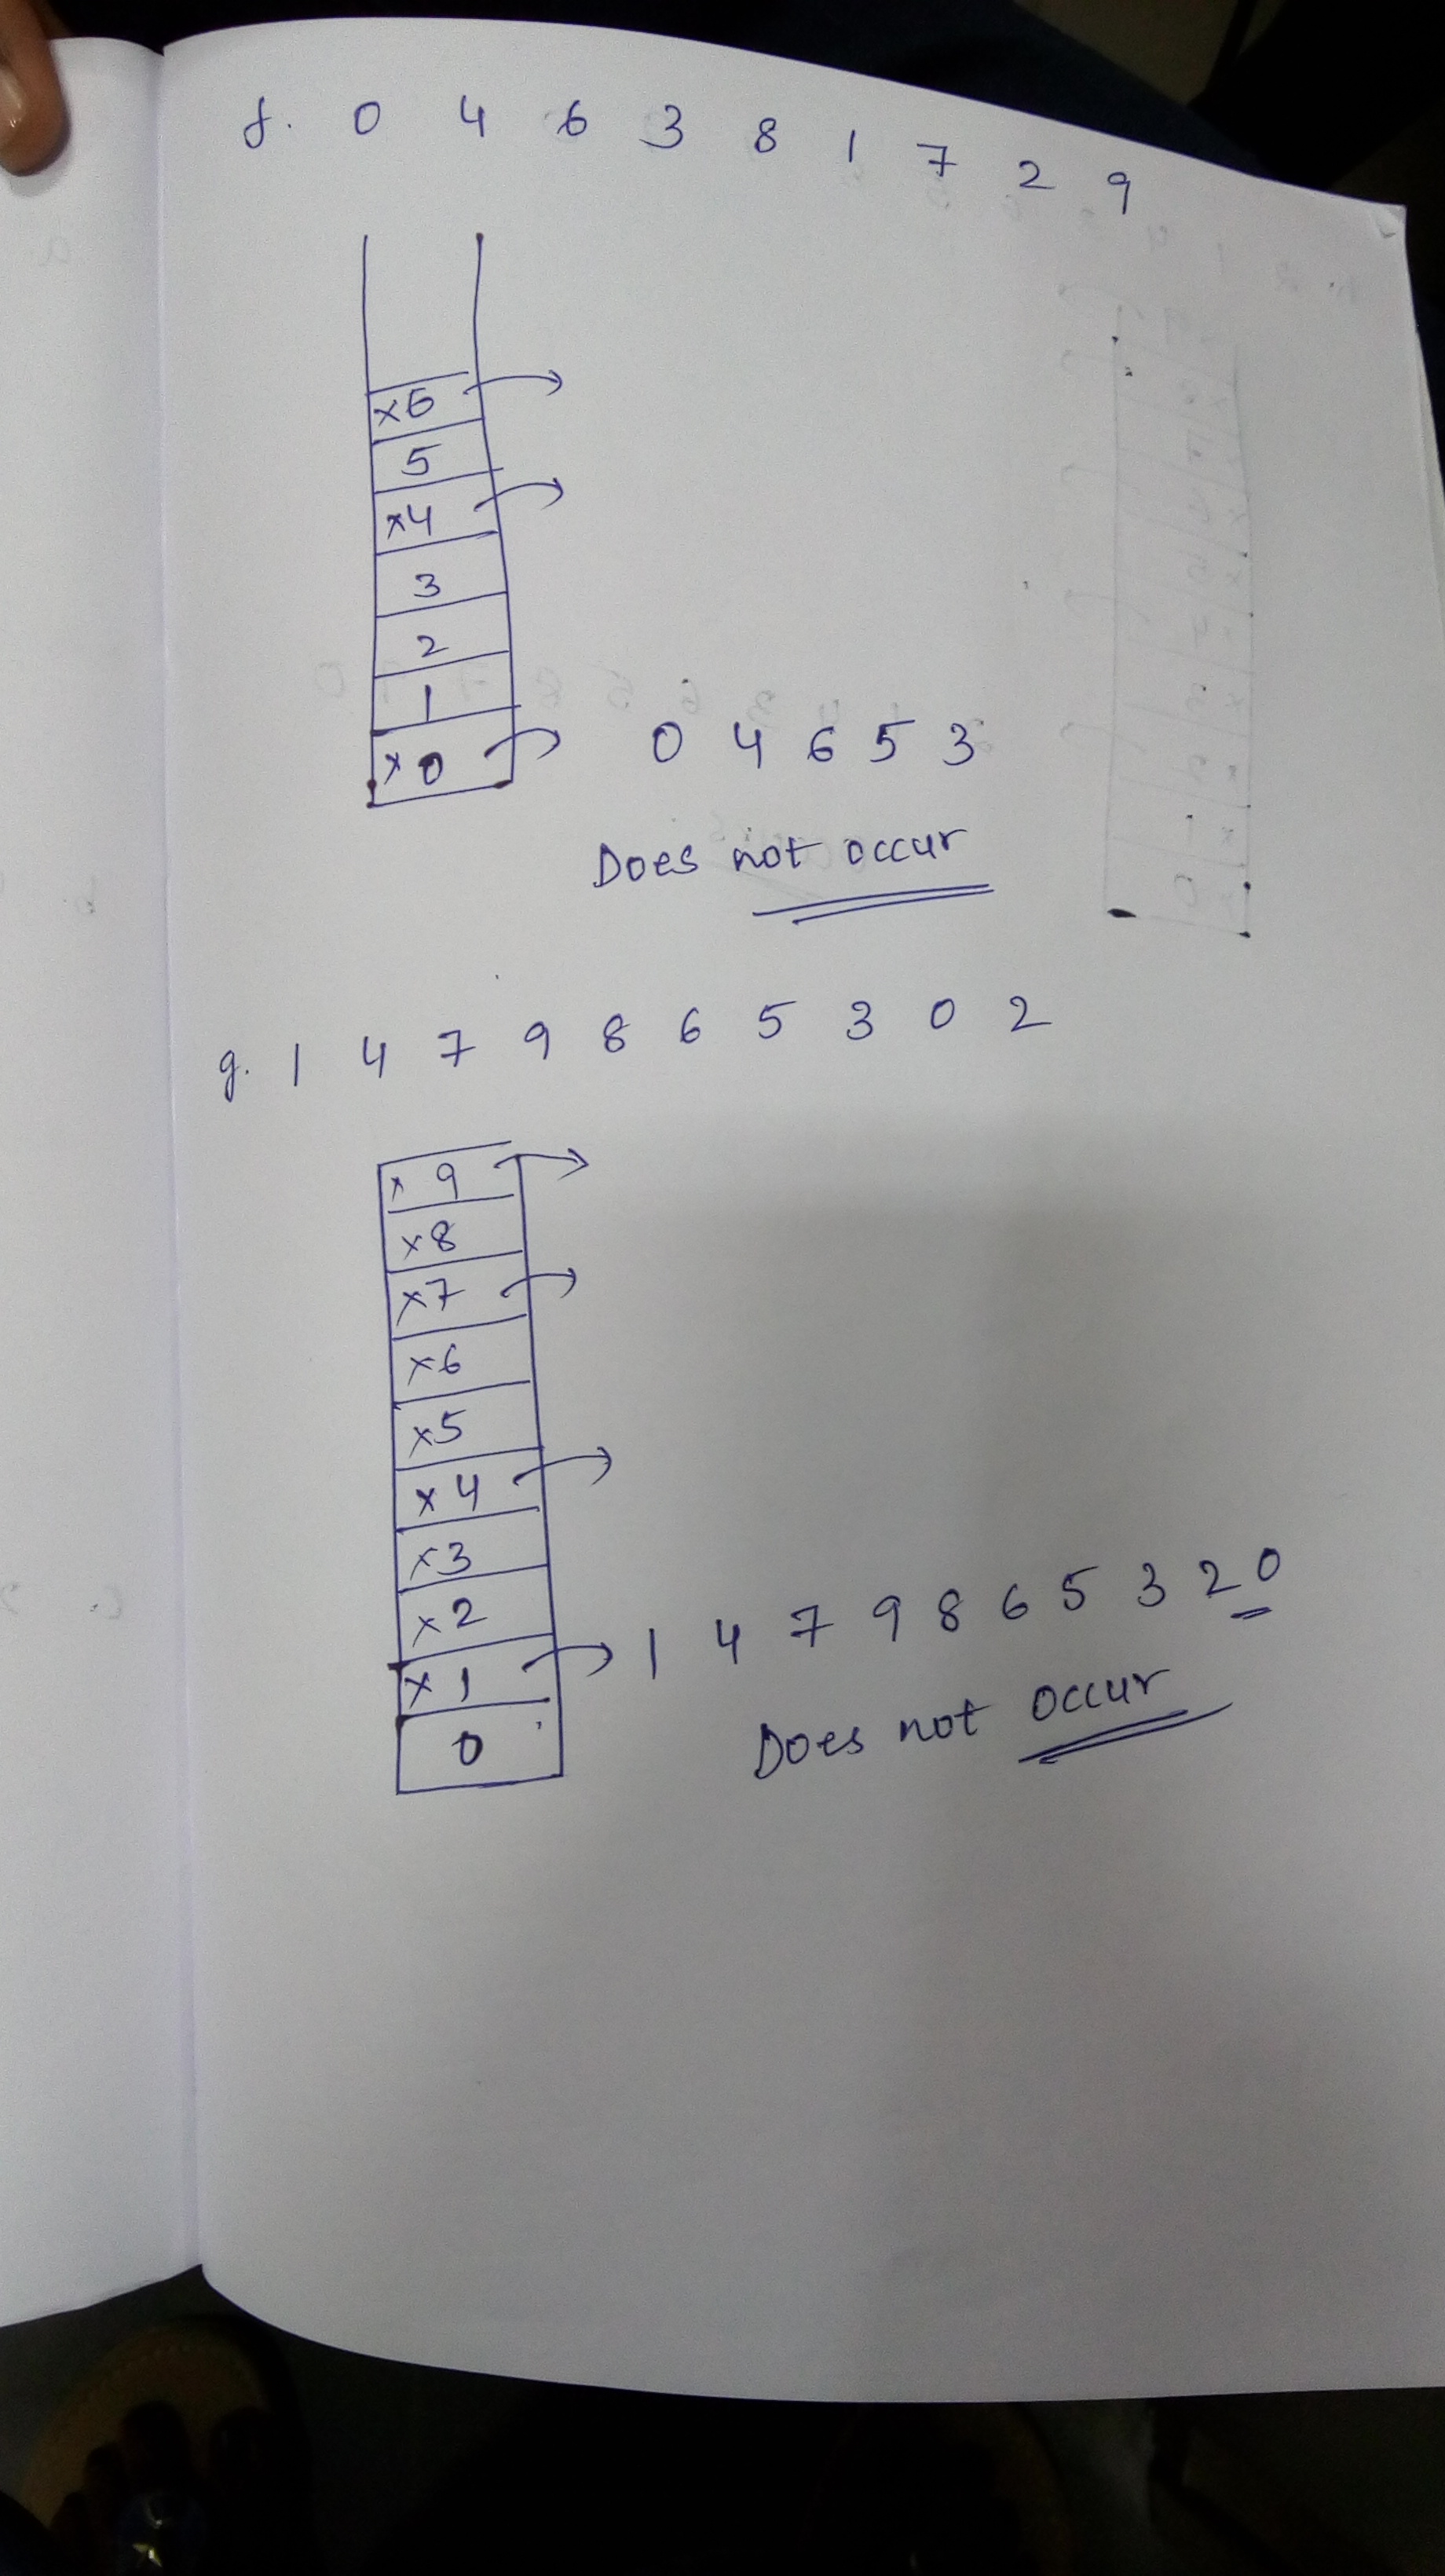 f. 0 4 6 3 8 1 7 2 9
×6
5
×4
3
2
1
×0
0 4 6 5 3
Does not occur
g. 1 4 7 9 8 6 5 3 0 2
× 9
×8
×7
×6
×5
× 4
×3
×2
× 1
0
1 4 7 9 8 6 5 3 2 0
Does not occur